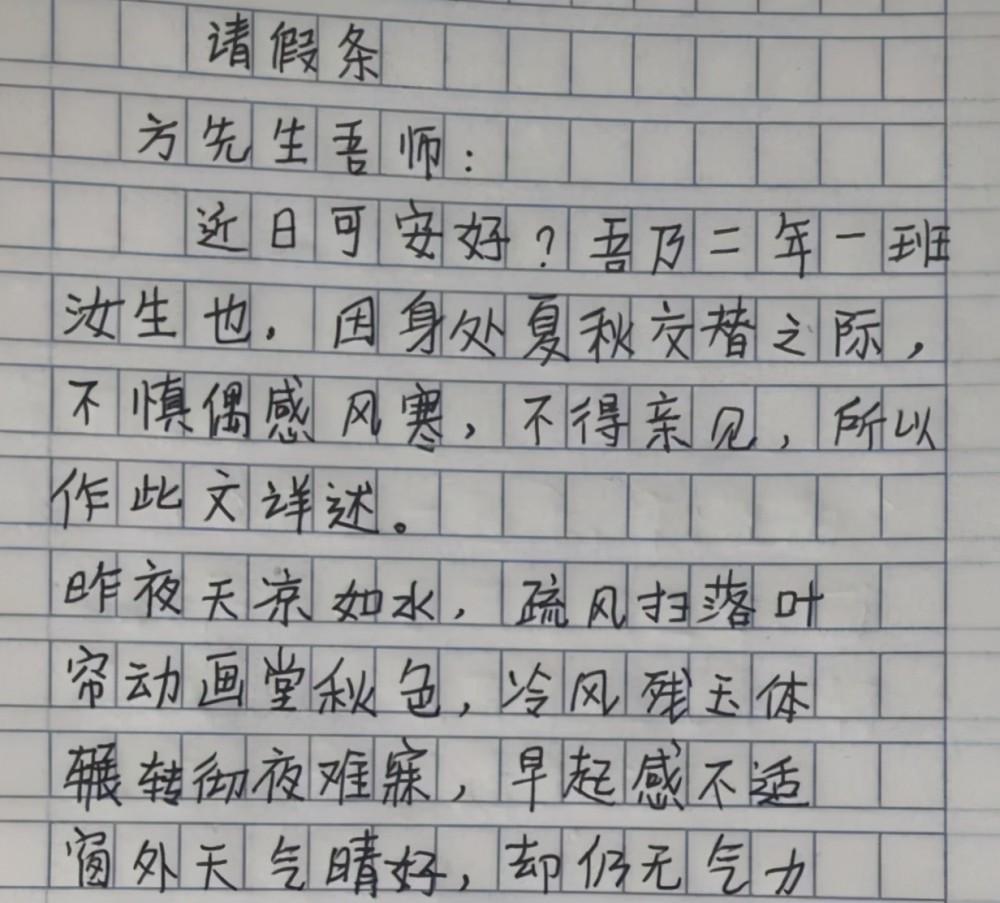 请假条
方先生吾师：
近日可安好？吾乃二年一班
汝生也，因身处夏秋交替之际，
不慎偶感风寒，不得亲见，所以
作此文详述。
昨夜天凉如水，疏风扫落叶
帘动画堂秋色，冷风残玉体
辗转彻夜难寐，早起感不适
窗外天气晴好，却仍无气力